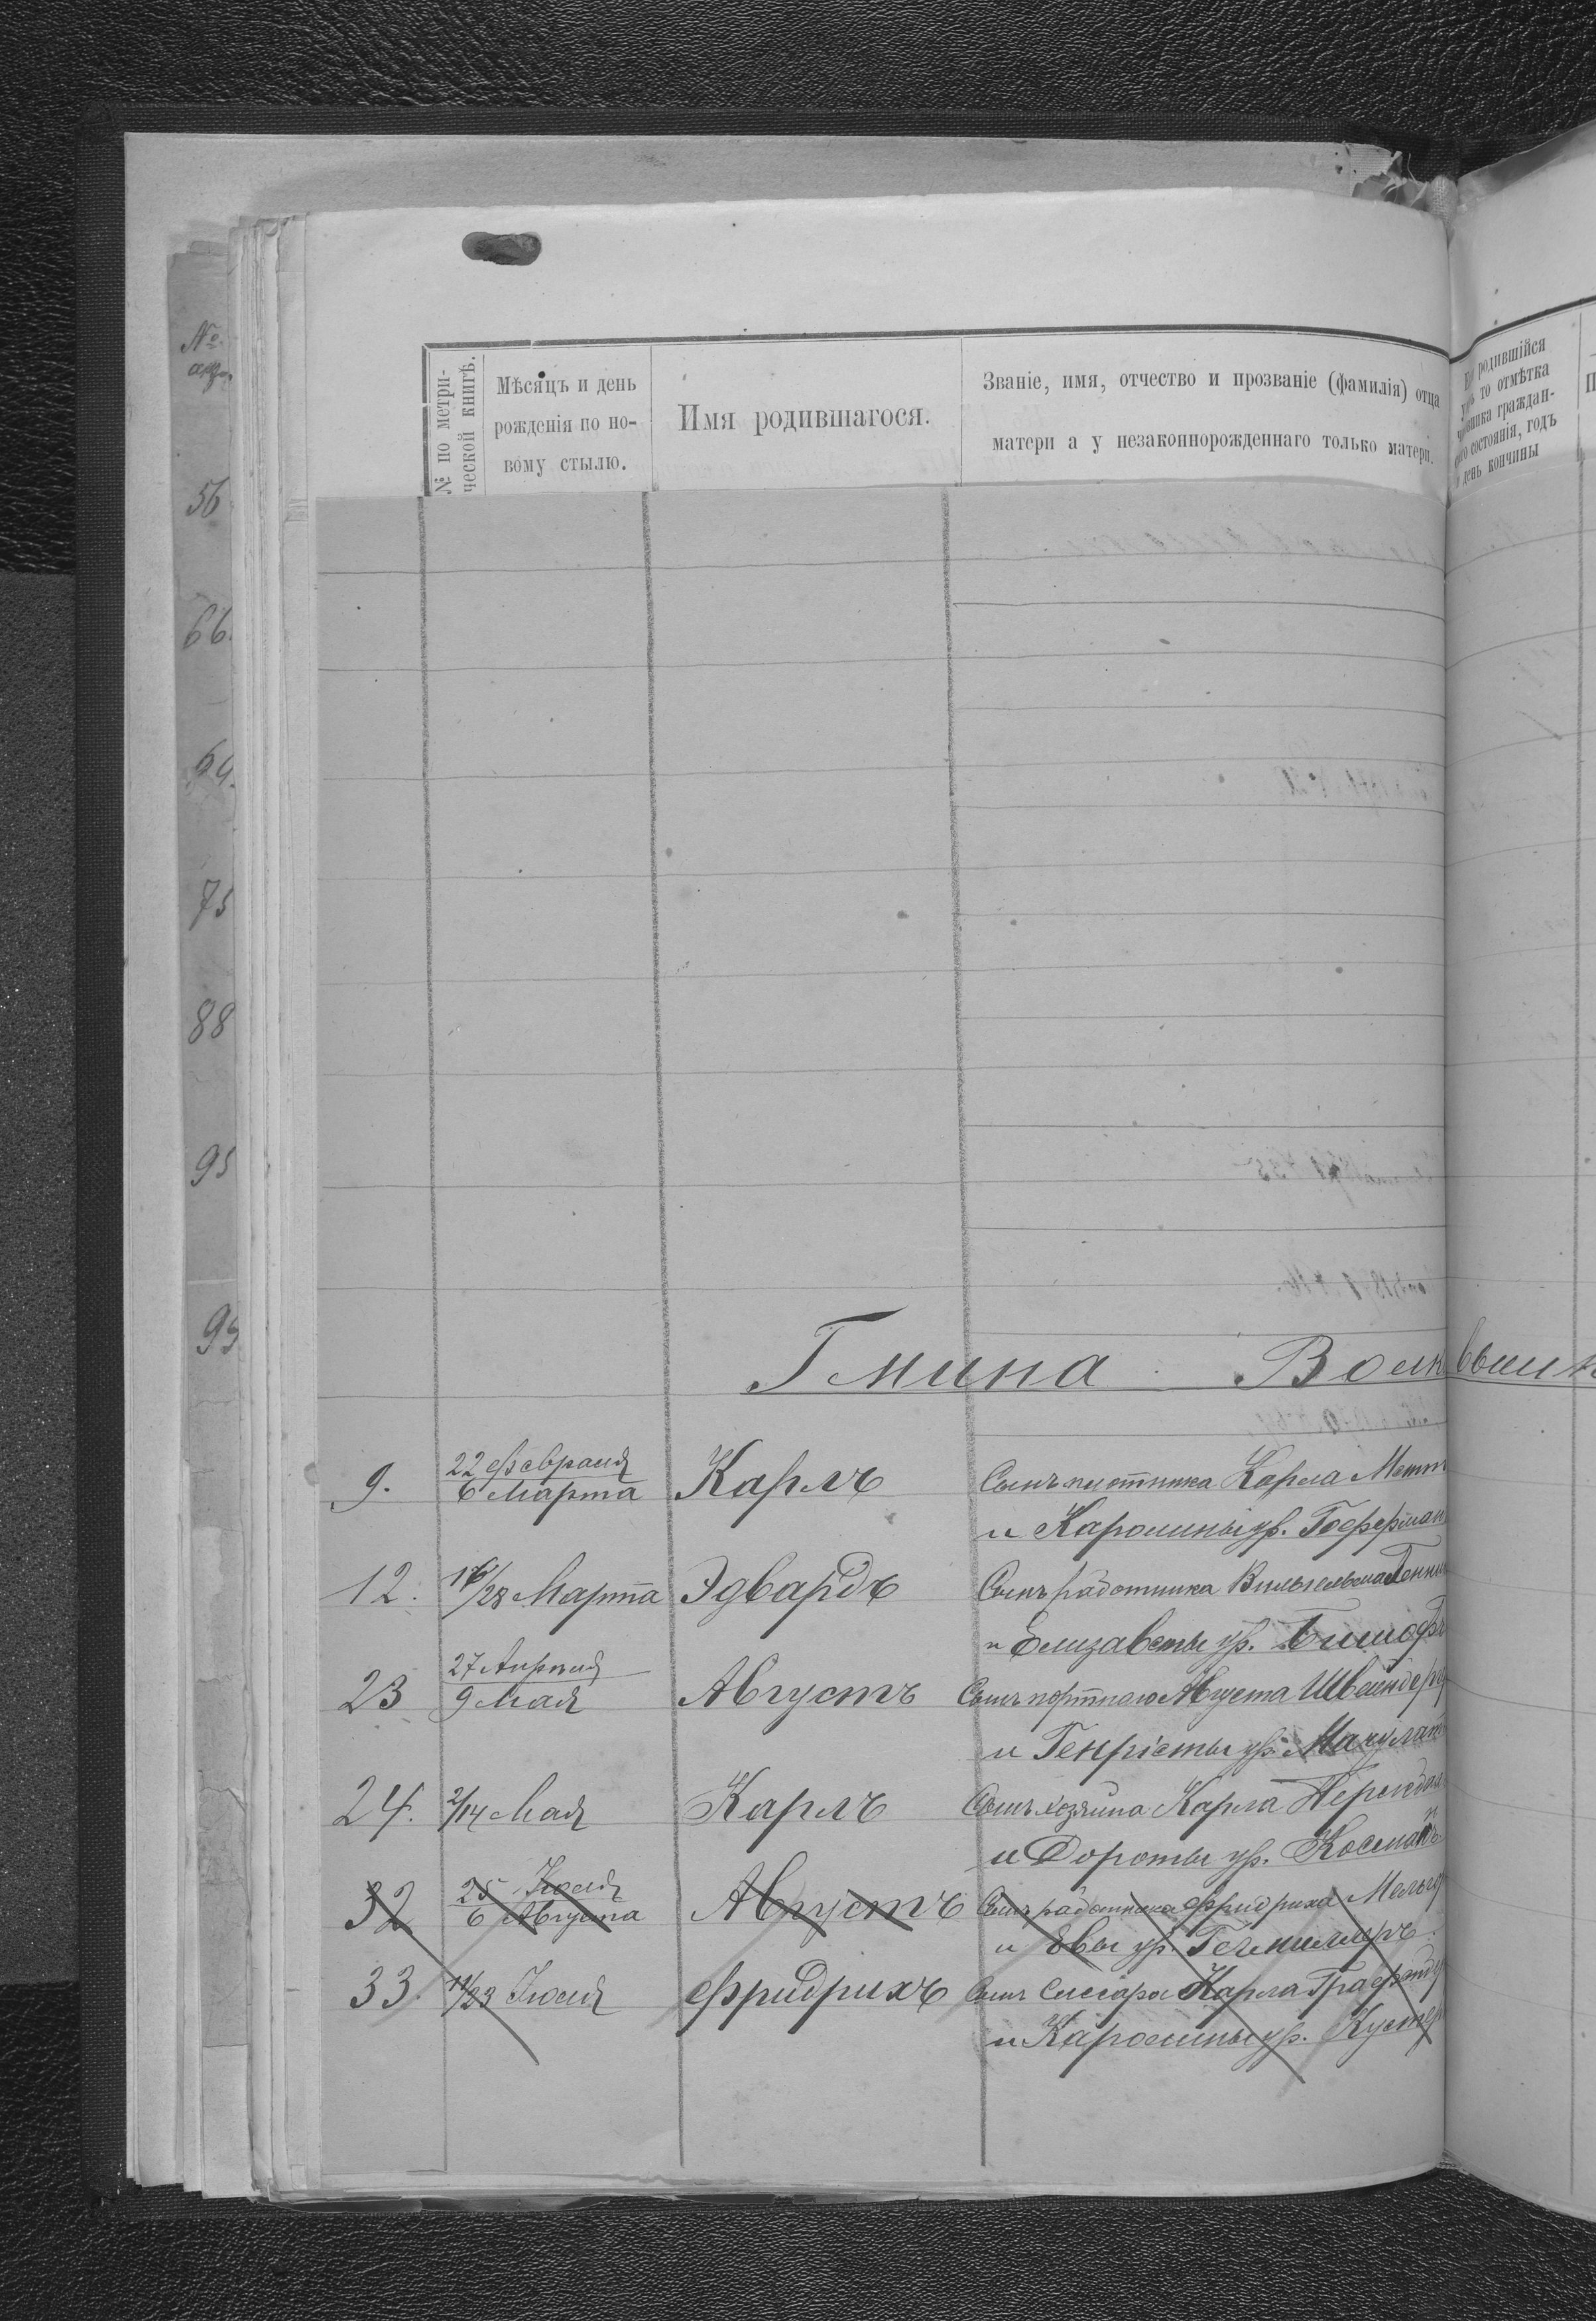 № по метри-
ческой книгѣ.
Мѣсяцъ и день
рожденія по но-
вому стылю.
Имя родившагося.
Званіе, имя, отчество и прозваніе (фамилія) отца
матери а у незаконнорожденнаго только матери.
родившійся
то отмѣтка
граждан-
состоянія, годъ
день кончины
№
56
66.
75
88
95
Гмина Волковышк
9.
22 Февраля
6 Марта
Карлъ
Сынъ плотника Карла
и Каролины ур. Гофферман
12.
16/28 Марта
Эдвардъ
Сынъ работника Вильгельма
и Елизаветы ур.
23
27 Апрѣля
9 Мая
Августъ
Сынъ портнаго Августа
и Генріеты ур.
24.
2/14 Мая
Карлъ
Сынъ хозяина Карла
и Дороты ур.
32
25 Іюля
6 Августа
Августъ
Сынъ работника Фридриха
и Евы ур.
33.
11/23 Іюля
Фридрихъ
Сынъ слесаря Карла
и Каролины ур.